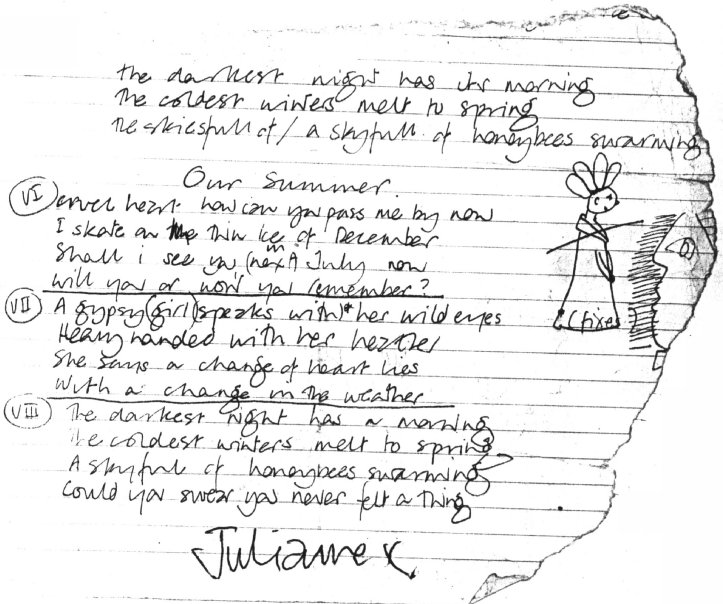 the darkest night has its morning
The coldest winters melt to spring
The skiesfull of / a skyfull of honeybees swarming
Our Summer.
VI cruel heart how can you pass me by now
I skate on the thin ice of December
Shall i see you (next) in July now
will you or won't you remember?
VII A gypsy (girl) (speaks with) her wild eyes
Heavy handed with her heather
She says a change of heart lies
With a change in the weather
VIII The darkest night has a morning
The coldest winters melt to spring
A skyfull of honeybees swarming
Could you swear you never felt a thing
Julianne x